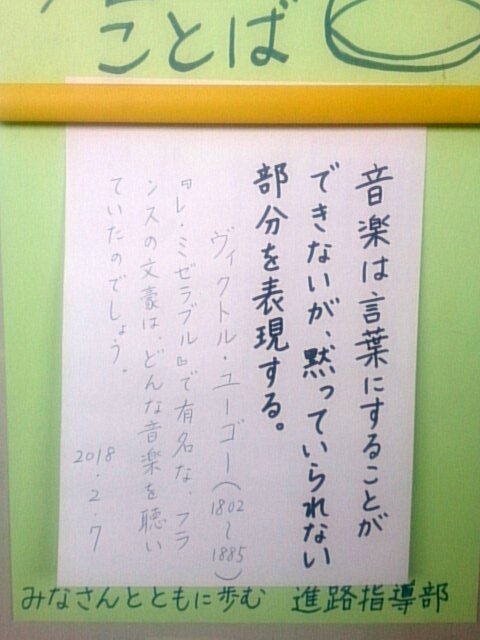 ことば
音楽は言葉にすることが
できないが、黙っていられない
部分を表現する。
ヴィクトル・ユーゴー（1802～1885）
『レ・ミゼラブル』で有名な、フラ
ンスの文豪は、どんな音楽を聴い
ていたのでしょう。
2018.2.7
みなさんとともに歩む 進路指導部